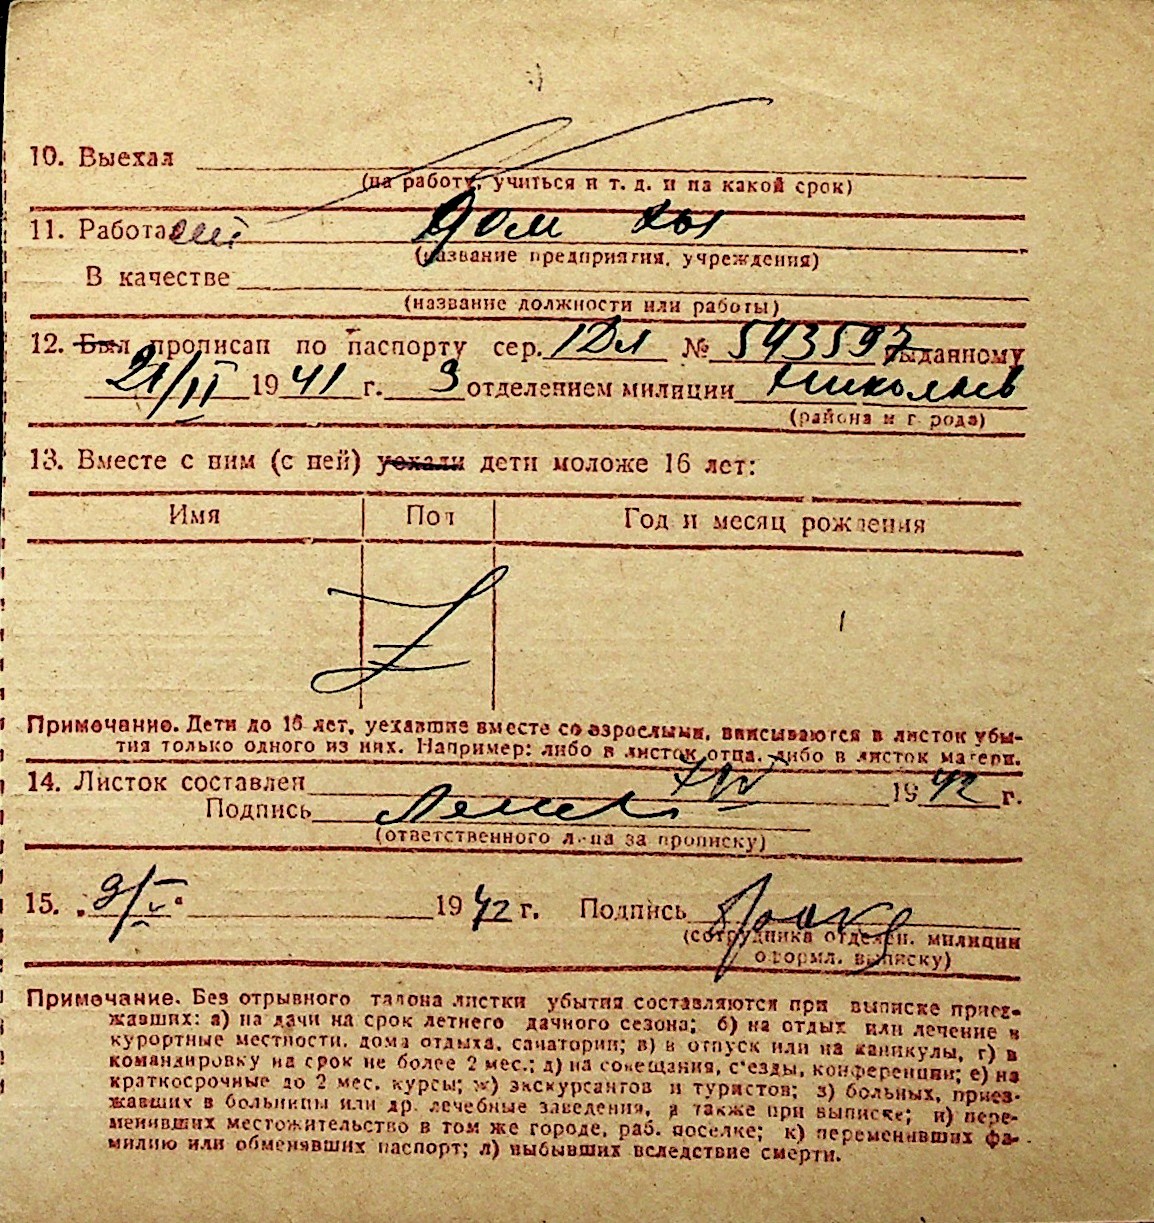 10. Выехал
(на работу, учиться и т. д. и на какой срок)
11. Работает Дом хоз
(название предприятия, учреждения)
В качестве
(название должности или работы)
12. Был прописан по паспорту сер. № 543597 выданному
21/II 1941 г. 3 отделением милиции Николаев
(района и города)
13. Вместе с ним (с ней) уехали дети моложе 16 лет:
Имя Пол Год и месяц рождения
Примечание. Дети до 16 лет, уехавшие вместе со взрослыми, вписываются в листок убы-
тия только одного из них. Например: либо в листок отца, либо в листок матери.
14. Листок составлен 1942 г.
Подпись
(ответственного лица за прописку)
15. „9/V“ 1942 г. Подпись
(сотрудника отделен. милиции
оформл. выписку)
Примечание. Без отрывного талона листки убытия составляются при выписке приез-
жавших: а) на дачи на срок летнего дачного сезона; б) на отдых или лечение в
курортные местности, дома отдыха, санатории; в) в отпуск или на каникулы, г) в
командировку на срок не более 2 мес.; д) на совещания, с'езды, конференции; е) на
краткосрочные до 2 мес. курсы; ж) экскурсантов и туристов; з) больных, приез-
жавших в больницы или др. лечебные заведения, а также при выписке; и) пере-
менивших местожительство в том же городе, раб. поселке; к) переменивших фа-
милию или обменявших паспорт; л) выбывших вследствие смерти.